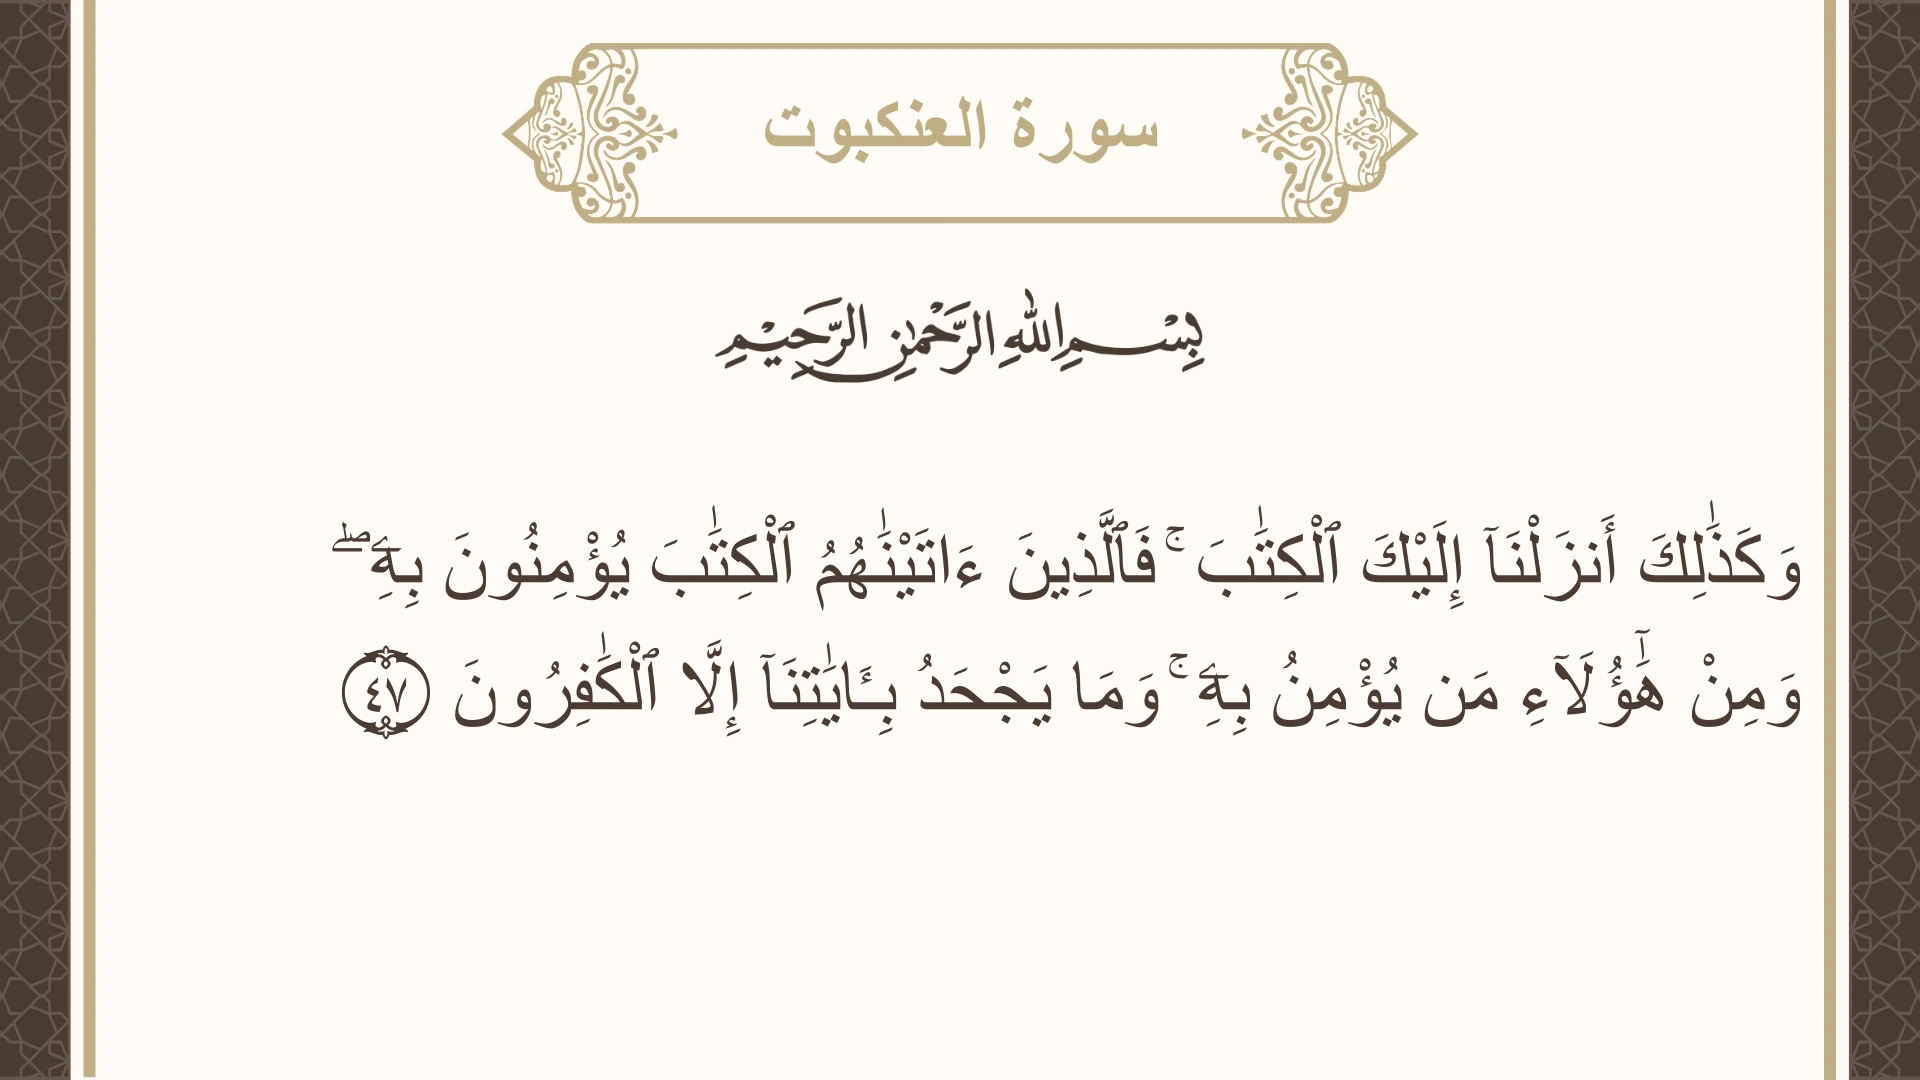 سورة العنكبوت
بِسْمِ اللهِ الرَّحْمٰنِ الرَّحِيْمِ
وَكَذَٰلِكَ أَنزَلْنَآ إِلَيْكَ ٱلْكِتَٰبَ ۚ فَٱلَّذِينَ ءَاتَيْنَٰهُمُ ٱلْكِتَٰبَ يُؤْمِنُونَ بِهِۦ ۖ
وَمِنْ هَٰٓؤُلَآءِ مَن يُؤْمِنُ بِهِۦ ۚ وَمَا يَجْحَدُ بِـَٔايَٰتِنَآ إِلَّا ٱلْكَٰفِرُونَ ٤٧